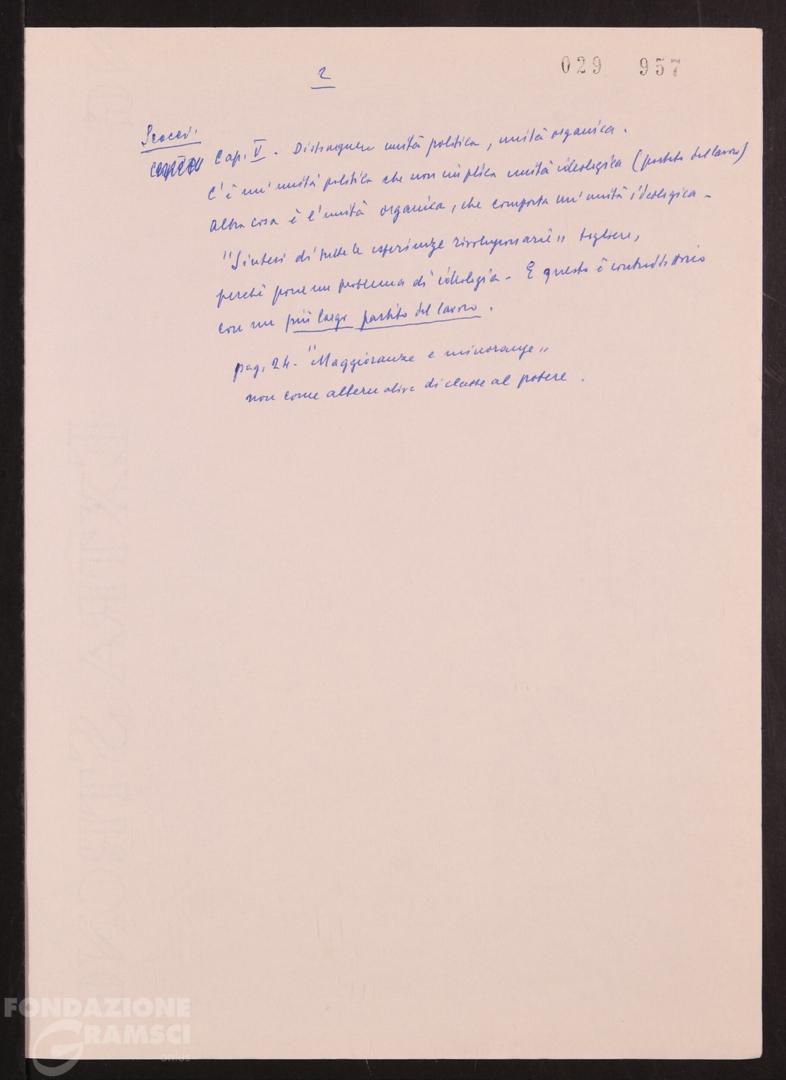 2
029 957
Scocci.
Cap. V - Distinguere unità politica, unità organica.
C'è un'unità politica che non implica unità ideologica (partito del lavoro)
altra cosa è l'unità organica, che comporta un'unità ideologica -
"Sintesi di tutte le esperienze rivoluzionarie" togliere,
perché pone un problema di ideologia - E questo è contraddittorio
con un più largo partito del lavoro.
pag. 24 - "Maggioranze e minoranze"
non come alternative di classe al potere.
FONDAZIONE
GRAMSCI
onlus